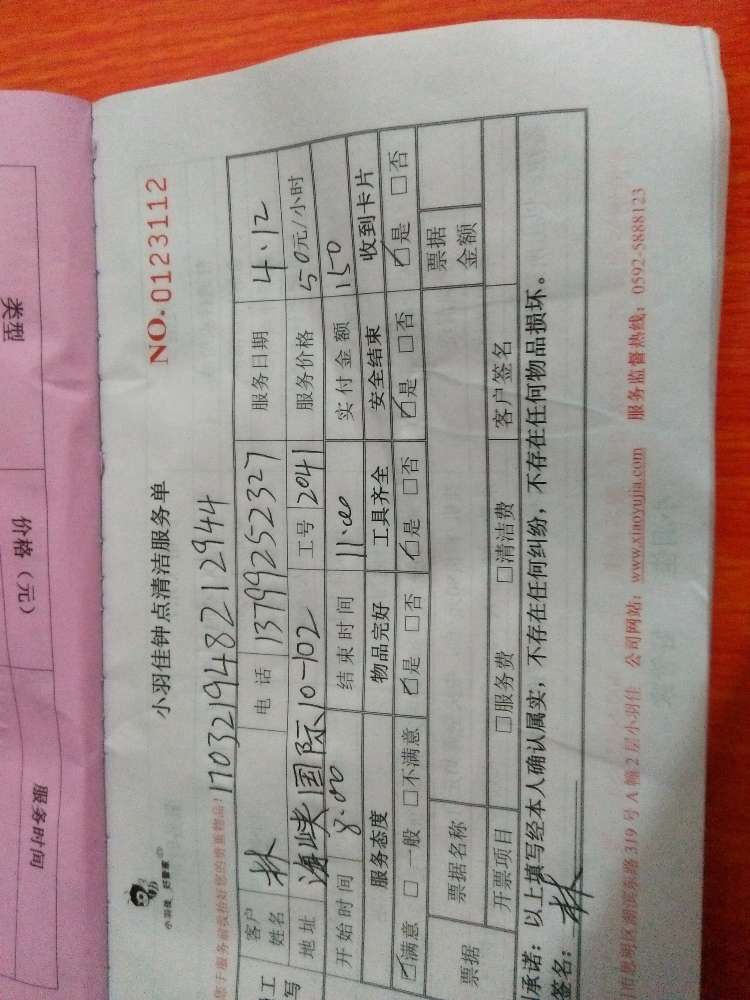 小羽佳 好管家
小羽佳钟点清洁服务单
NO.0123112
17032194821294​4
客户姓名 林 电话 13799252327 服务日期 4.12
地址 海峡国际10-102 工号 2041 服务价格 50元/小时
开始时间 8:00 结束时间 11:00 实付金额 150
服务态度 物品完好 工具齐全 安全结束 收到卡片
☑满意 □一般 □不满意 ☑是 □否 ☑是 □否 ☑是 □否 ☑是 □否
票据 票据名称 票据金额
开票项目 □服务费 □清洁费 客户签名
承诺：以上填写经本人确认属实，不存在任何纠纷，不存在任何物品损坏。
签名：林
市思明区湖滨东路319号A幢2层小羽佳 公司网站：www.xiaoyujia.com 服务监督热线：0592-5888123
类型 价格（元） 服务时间